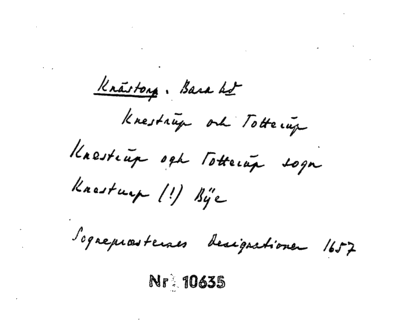 Knästorp. Bara hd
Knestrüp och Totterüp
Knestrüp ogh Totterüp sogn
Knesturp (!) Bÿe
Sognepræsternes Designationer 1657
Nr 10635